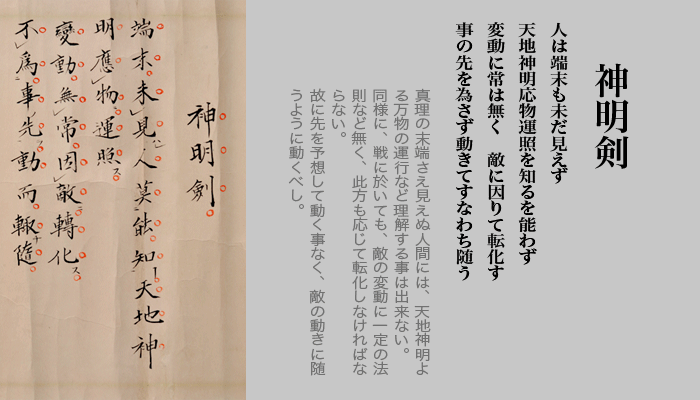 神明剣
人は端末も未だ見えず
天地神明応物運照を知るを能わず
変動に常は無く　敵に因りて転化す
事の先を為さず動きてすなわち随う
真理の末端さえ見えぬ人間には、天地神明よ
る万物の運行など理解する事は出来ない。
同様に、戦に於いても、敵の変動に一定の法
則など無く、此方も応じて転化しなければな
らない。
故に先を予想して動く事なく、敵の動きに随
うように動くべし。
神明劍
端末未見人莫能知天地神
明應物運照ス
變動無常因敵轉化ス
不爲事先動而輙隨